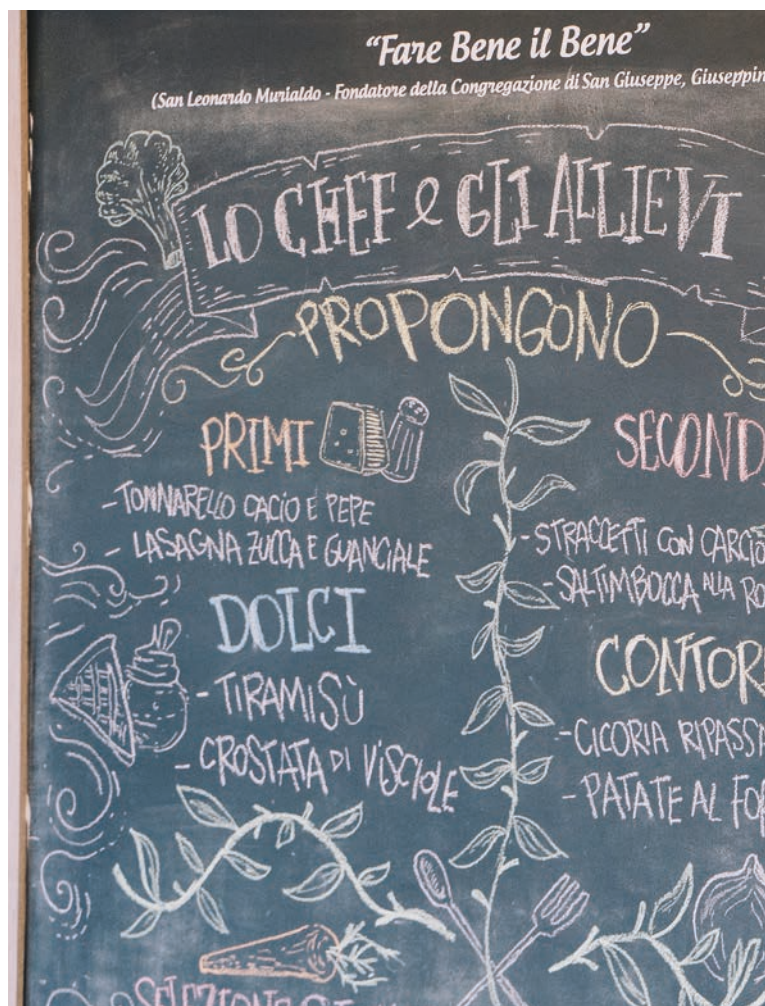 “Fare Bene il Bene”
(San Leonardo Murialdo - Fondatore della Congregazione di San Giuseppe, Giuseppin
LO CHEF e GLI ALLIEVI
PROPONGONO
PRIMI
-TONNARELLO CACIO E PEPE
- LASAGNA ZUCCA E GUANCIALE
DOLCI
- TIRAMISÙ
- CROSTATA DI VISCIOLE
SECOND
-STRACCETTI CON CARCIO
-SALTIMBOCCA ALLA RO
CONTOR
-CICORIA RIPASSA
- PATATE AL FO